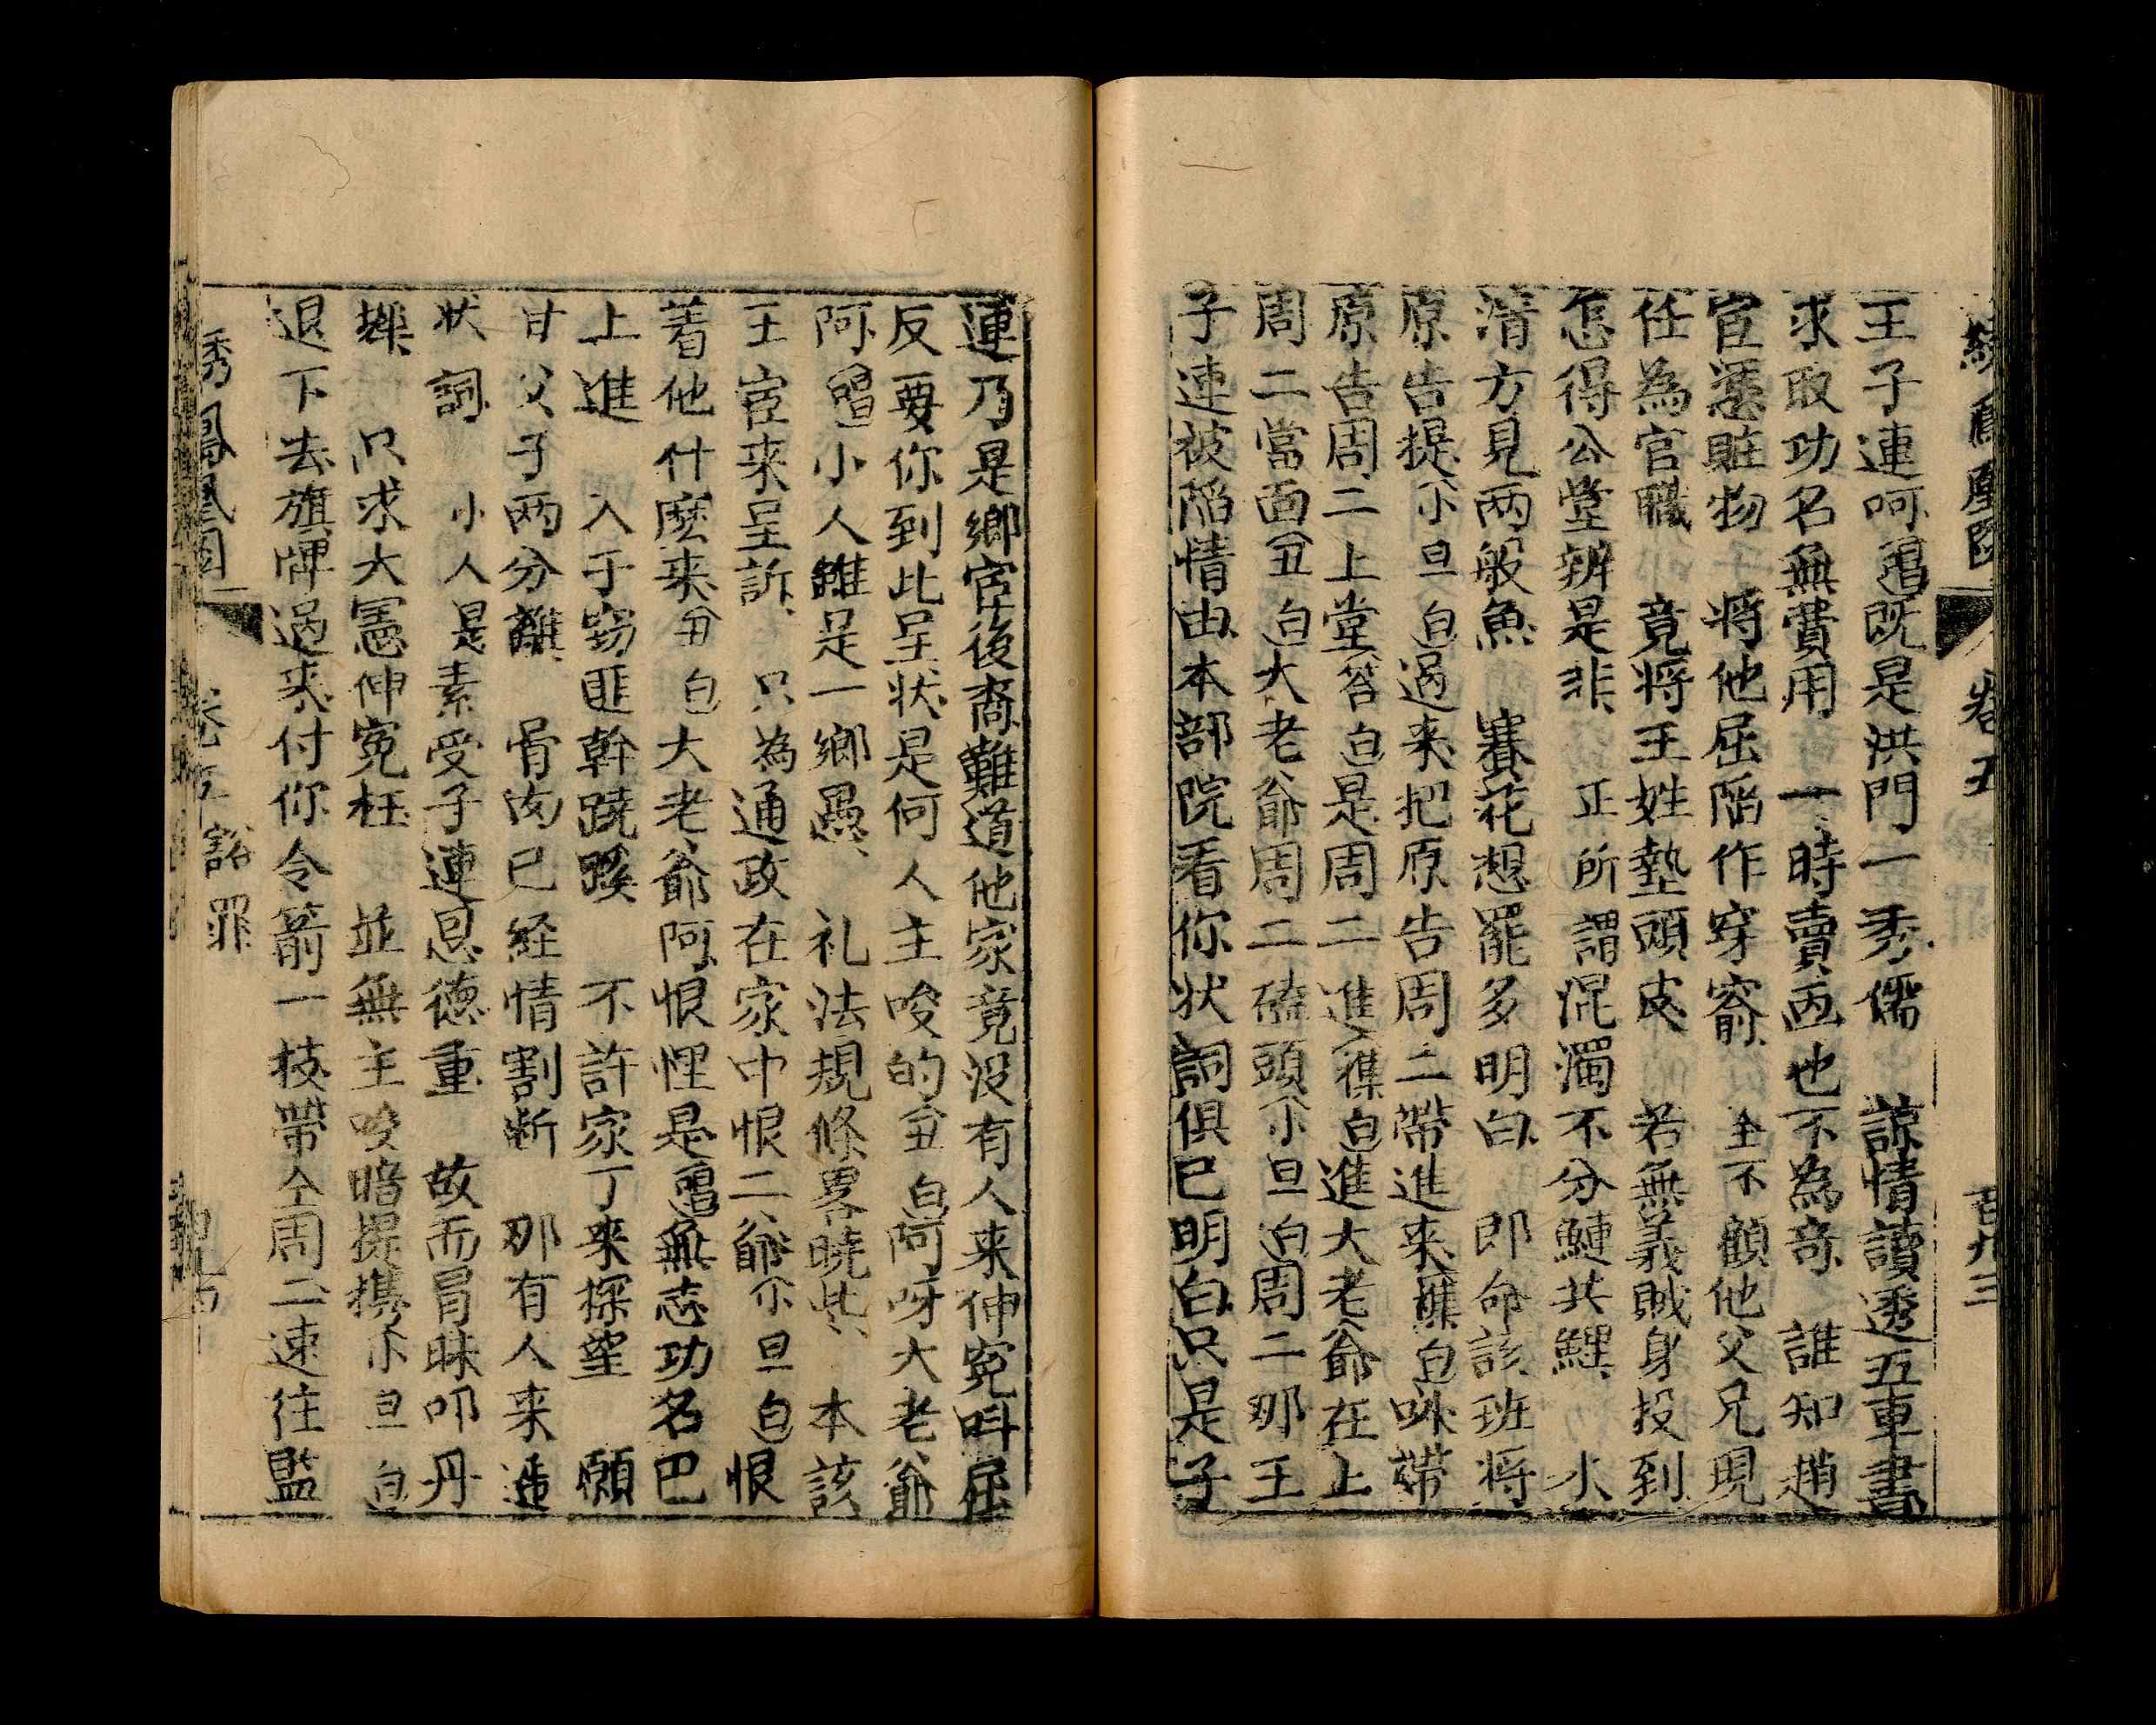 王子連呵唱既是洪門一秀儒　諒情讀透五車書
求取功名無費用　一時賣西也不為竒　誰知趙
宦懸賍物　將他屈陷作穿窬　全不顧他父兄現
任為官職　竟將王姓墊頭皮　若無義賊身投到
怎得公堂辨是非　正所謂混濁不分鰱共鯉　水
清方見两般魚　賽花想罷多明白　即命該班將
原告提介旦白過来把原告周二帶進来雜白咊帶
原告周二上堂答白是周二進雜白進大老爺在上
周二當面丑白大老爺周二磕頭介旦白周二那王
子連被陷情由本部院看你状詞俱已明白只是子
連乃是鄉宦後裔難道他家竟没有人来伸寃呌屈
反要你到此呈状是何人主唆的丑白阿呀大老爺
阿唱小人雖是一鄉愚　礼法規條畧曉其　本該
王宦来呈訴　只為通政在家中恨二爺介旦白恨
着他什麽来丑白大老爺阿恨恠是唱無志功名巴
上進　入于窈匪幹蹺蹊　不許家丁来探望　願
甘父子两分離　骨肉已経情割断　那有人来遞
状詞　小人是素受子連恩德重　故而冒昧叩丹
墀　只求大憲伸寃枉　並無主唆暗提携介旦白
退下去旗牌過来付你令箭一枝帶仝周二速往監
綉鳳凰圖　卷五　百九三
綉鳳凰圖　卷五　豁罪